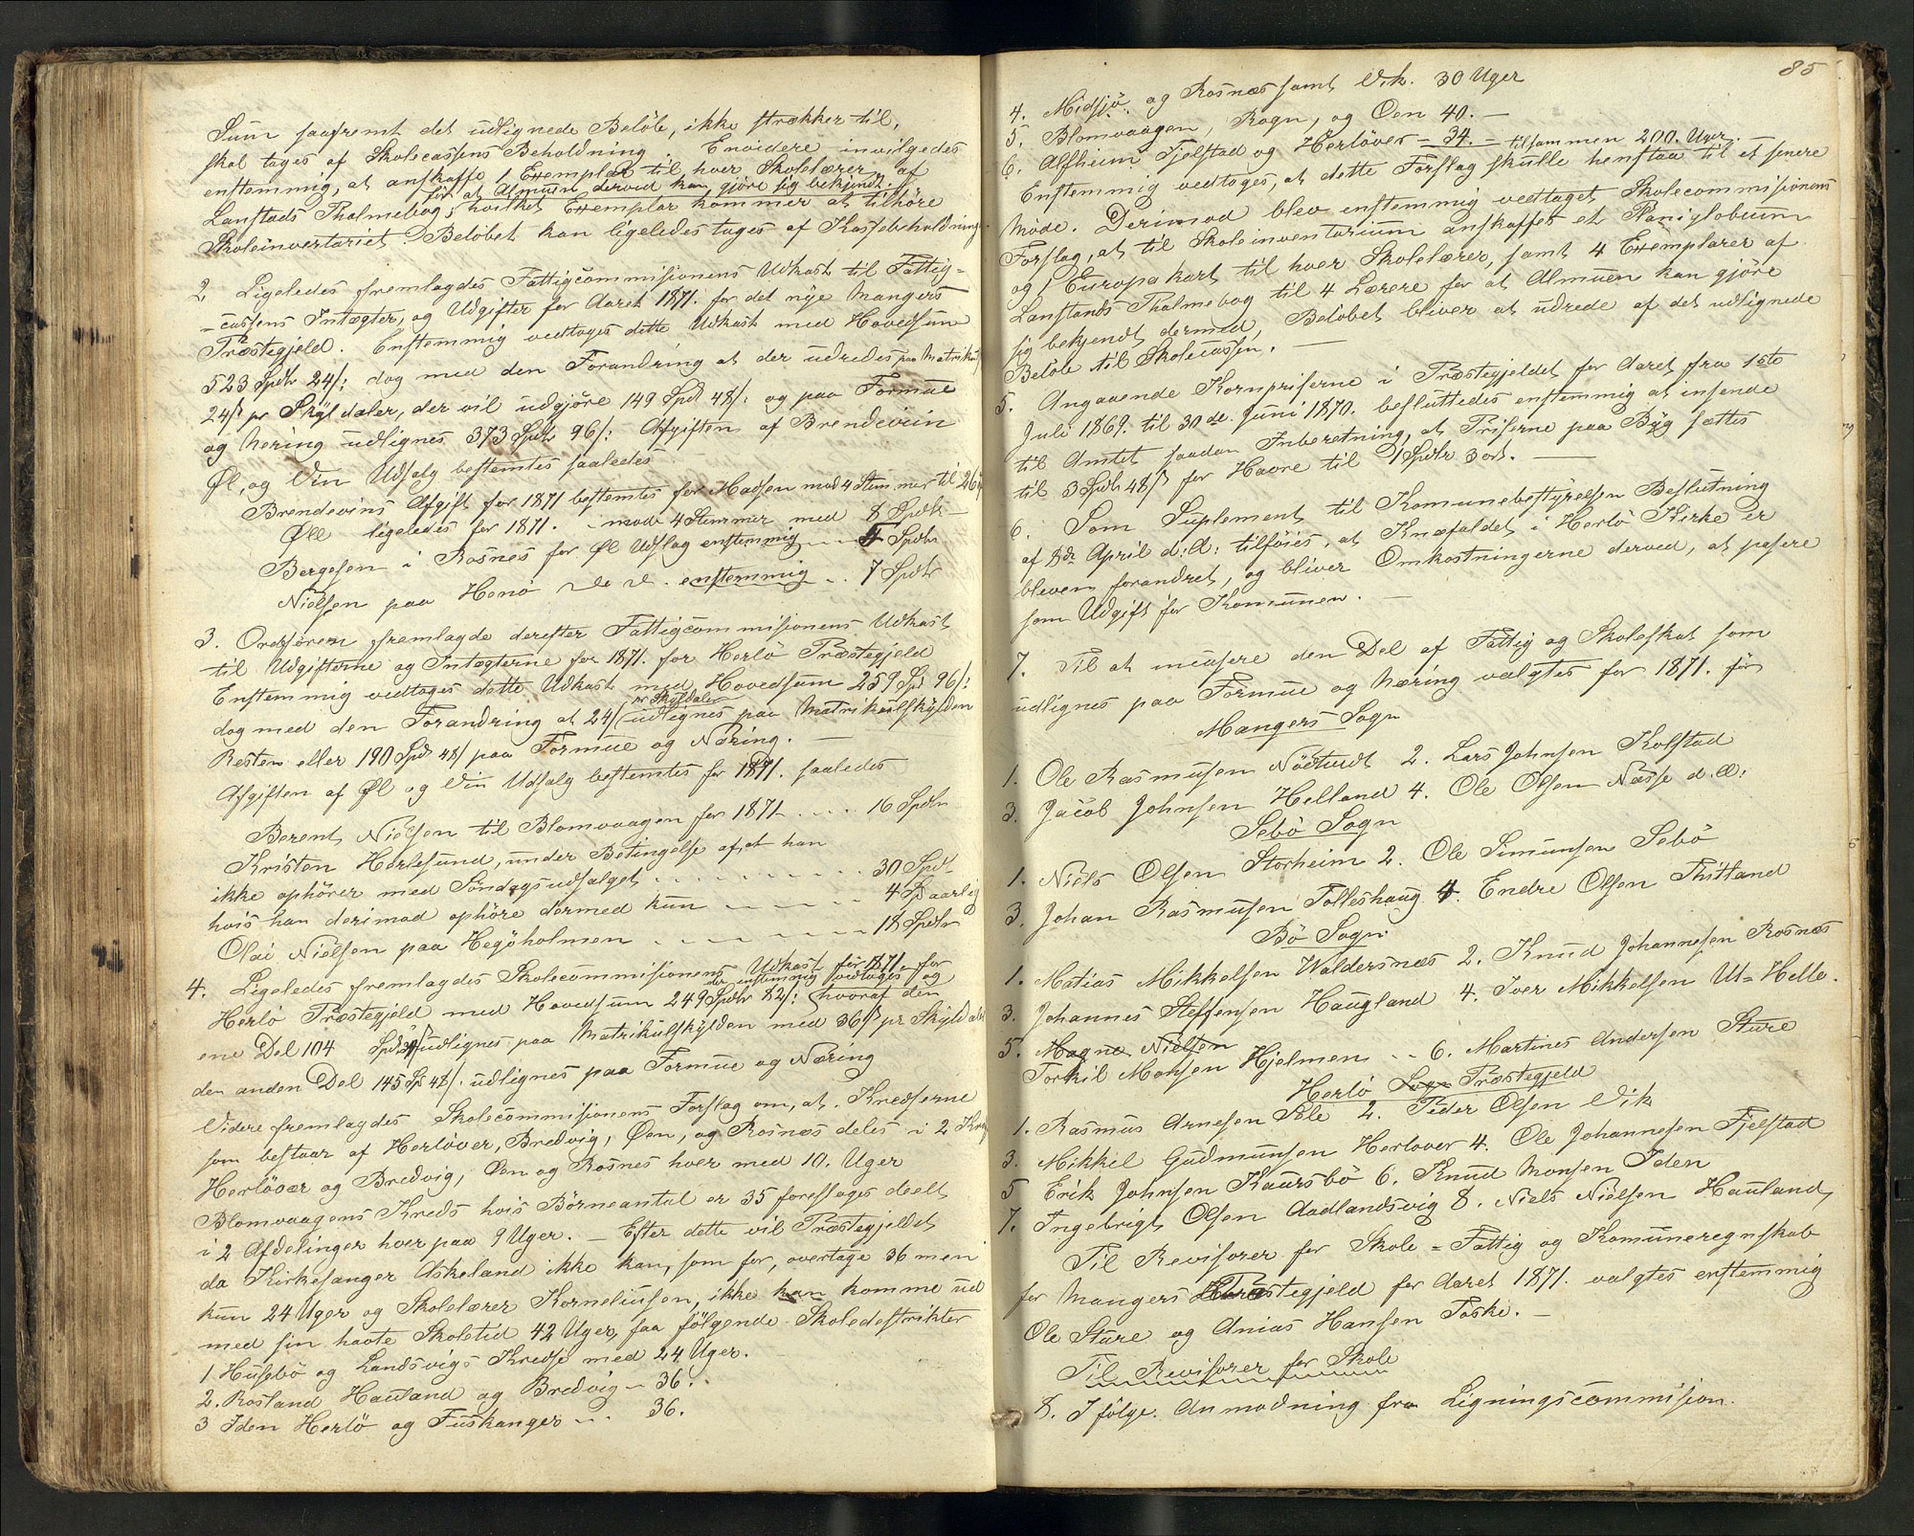 Sum saafremt det udlignede Beløb, ikke strækker til,
skal tages af Skolecassens Beholdning. Envidere indvilgedes
enstemmig, at anskaffe 1 Exemplar til hver Skolelærer af
for at Almuen derved kan gjöre sig bekjendt.
Lanstads Psalmebog, hvilket Exemplar kommer at tilhöre
Skoleinventariet. Belöbet kan ligeledes tages af Kassebeholdning
2 Ligeledes fremlagdes Fattigcommisionens Udkast til Fattig-
-cassens Intægter, og Udgifter for Aaret 1871. for det nye Mangers
Præstegjeld. Enstemmig vedtoges dette Udkast med Hovedsum
523 Spdlr 24/: dog med den Forandring at der udredes paa Matrikul
24 /s pr Skyldaler, der vil udgjöre 149 Spd 48/: og paa Formue
og Næring udlignes 373 Spdlr 96/: Afgiften af Brendeviin
Øl, og Viin Udsalg bestemtes saaledes
Brendeviins Afgift for 1871 bestemtes for Madsen mod 4 Stemmer til 26
Øll ligeledes for 1871. - mode 4 Stemmer med 8 Spdlr -
Bergesen i Rosnes for Øl Udslag enstemmig - - 5 Spdlr
Nielsen paa Henö de d. enstemmig .. 7 Spdlr
3. Ordföreren fremlagde derefter Fattigcommisionens Udkast
til Udgifterne og Intægterne for 1871. for Herlö Præstegjeld
Enstemmig vedtoges dette Udkast med Hovedsum 259 Spd 96/:
pr Skyldaler
dog med den Forandring at 24/ udlignes paa Matrikulskylden
Resten eller 190 Spd 48/ paa Formue og Næring. -
Afgiften af Øl og Viin Udsalg bestemtes for 1871. saaledes
Berent Nielsen til Blomvaagen for 1871 - . . . 16 Spdlr
Kristen Herlesund, under Betingelse af, at han
ikke ophører med Söndagsudsalget . . . . . . . . . 30 Spd
hvis han derimod ophöre dermed kun - - - - - - 4 Sp aarlig
Olai Nielsen paa Hegöholmen . . - - - - - - - 18 Spdlr
4. Ligeledes fremlagdes Skolecommisionens Udkast for 1871. for
der enstemmig vedtoges og
Herlö Præstegjeld med Hovedsum 249 Spdlr 82/: hvoraf den
ene Del 104 Spd 34/ udlignes paa Matrikulskylden med 36/s pr Skyldaler
den anden Del 145 Sp 48/. udlignes paa Formue og Næring
Videre fremlagdes Skolecommisionens Forslag om, at Kredserne
som bestaar af Herlöver, Bredvig, Øen, og Rosnes deles i 2 Kreds
Herlöver og Bredvig, Øen og Rosnes hver med 10. Uger
Blomvaagens Kreds hvis Börneantal er 35 foreslages deelt
i 2 Afdelinger hver paa 9 Uger. - Efter dette vil Præstegjeldet
da Kirkesanger Askeland ikke kan, som før, overtage 36 men
kun 24 Uger og Skolelærer Korneliusen, ikke kan komme ud
med sin havte Skoletid 42 Uger, faa fölgende Skoledestrikter
1 Husebö og Landsvigs Kredse med 24 Uger.
2. Rosland Hauland og Bredvig - 36. .
3 Iden Herlö og Fuskanger - . . 36.
85
4. Midsjö og Rosnes samt Vik. 30 Uger
5. Blomvaagen, Rogn, og Øen 40. -
6. Alfheim Fjelstad og Herlöver - 34. - tilsammen 200. Uger. -
Enstemmig vedtoges, at dette Forslag skulle henstaa til et senere
Möde. Derimod blev enstemmig vedtaget Skolecommisionens
Forslag, at til Skoleinventarium anskaffes et Planiglobeum
og 1 Europakart til hver Skolelærer, samt 4 Exemplarer af
Lanstands Psalmebog til 4 Lærere for at Almuen kan gjöre
sig bekjendt dermed, Belöbet bliver at udrede af det udlignede
Belöb til Skolecassen. -
5. Angaaende Kornpriserne i Præstegjeldet for Aaret fra 1ste
Juli 1869. til 30de Juni 1870. besluttedes enstemmig at insende
til Amtet saadan Inberetning, at Priserne paa Byg sættes
til 3 Spdlr 48/s for Havre til 1 Spdlr 3 ort. -
6. Som Suplement til Komunebestyrelsen Beslutning
af 8de April d: A: tilföies, at Knæfaldet i Herlö Kirke er
bleven forandret, og bliver Omkostningerne derved, at pasere
som Udgift for Komunen. -
7. Til at incasere den Del af Fattig og Skoleskat som
udlignes paa Formue og Næring valgtes for 1871. for
Mangers Sogn
1. Ole Rasmusen Nödtvedt 2. Lars Johnsen Kolstad
3. Jacob Johnsen Helland 4. Ole Olsen Næsse d. Æ:
Sebö Sogn
1. Niels Olsen Storheim 2. Ole Simunsen Sebö
3. Johan Rasmusen Tolleshaug 4. Endre Olsen Thitland
Bö Sogn
1. Matias Mikkelsen Waldersnæs 2. Knud Johannesen Rosnæs
3. Johannes Steffensen Haugland 4. Iver Mikkelsen Ut-Helle.
5. Magne Nielsen
Torkil Monsen Hjelmen . . 6. Martines Andersen Sture
Herlö Sogn Præstegjeld
1. Rasmus Arnesen Pile 2. Peder Olsen Vik
3. Mikkel Gudmunsen Herlover 4. Ole Johannesen Fjelstad
5 Erik Johnsen Kaursbö 6. Knud Monsen Iden
7. Ingebrigt Olsen Aadlandsvig 8. Niels Nielsen Hauland,
Til Revisorer for Skole - Fattig og Komuneregnskab
for Mangers Præstegjeld for Aaret 1871. valgtes enstemmig
Ole Sture og Anias Hansen Toske. -
Til Revisorer for Skole
8. I følge. Anmodning fra Ligningscommision.